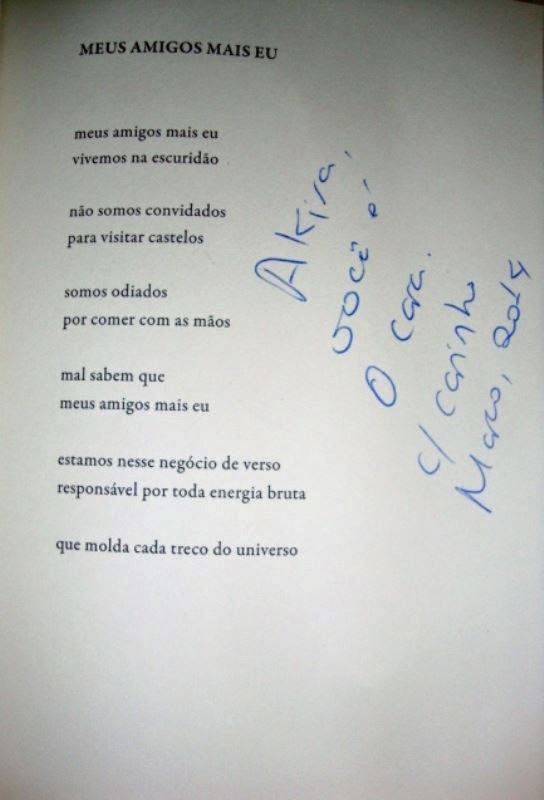 MEUS AMIGOS MAIS EU
meus amigos mais eu
vivemos na escuridão
não somos convidados
para visitar castelos
somos odiados
por comer com as mãos
mal sabem que
meus amigos mais eu
estamos nesse negócio de verso
responsável por toda energia bruta
que molda cada treco do universo
Akira,
você é
O cara.
c/ carinho
2014